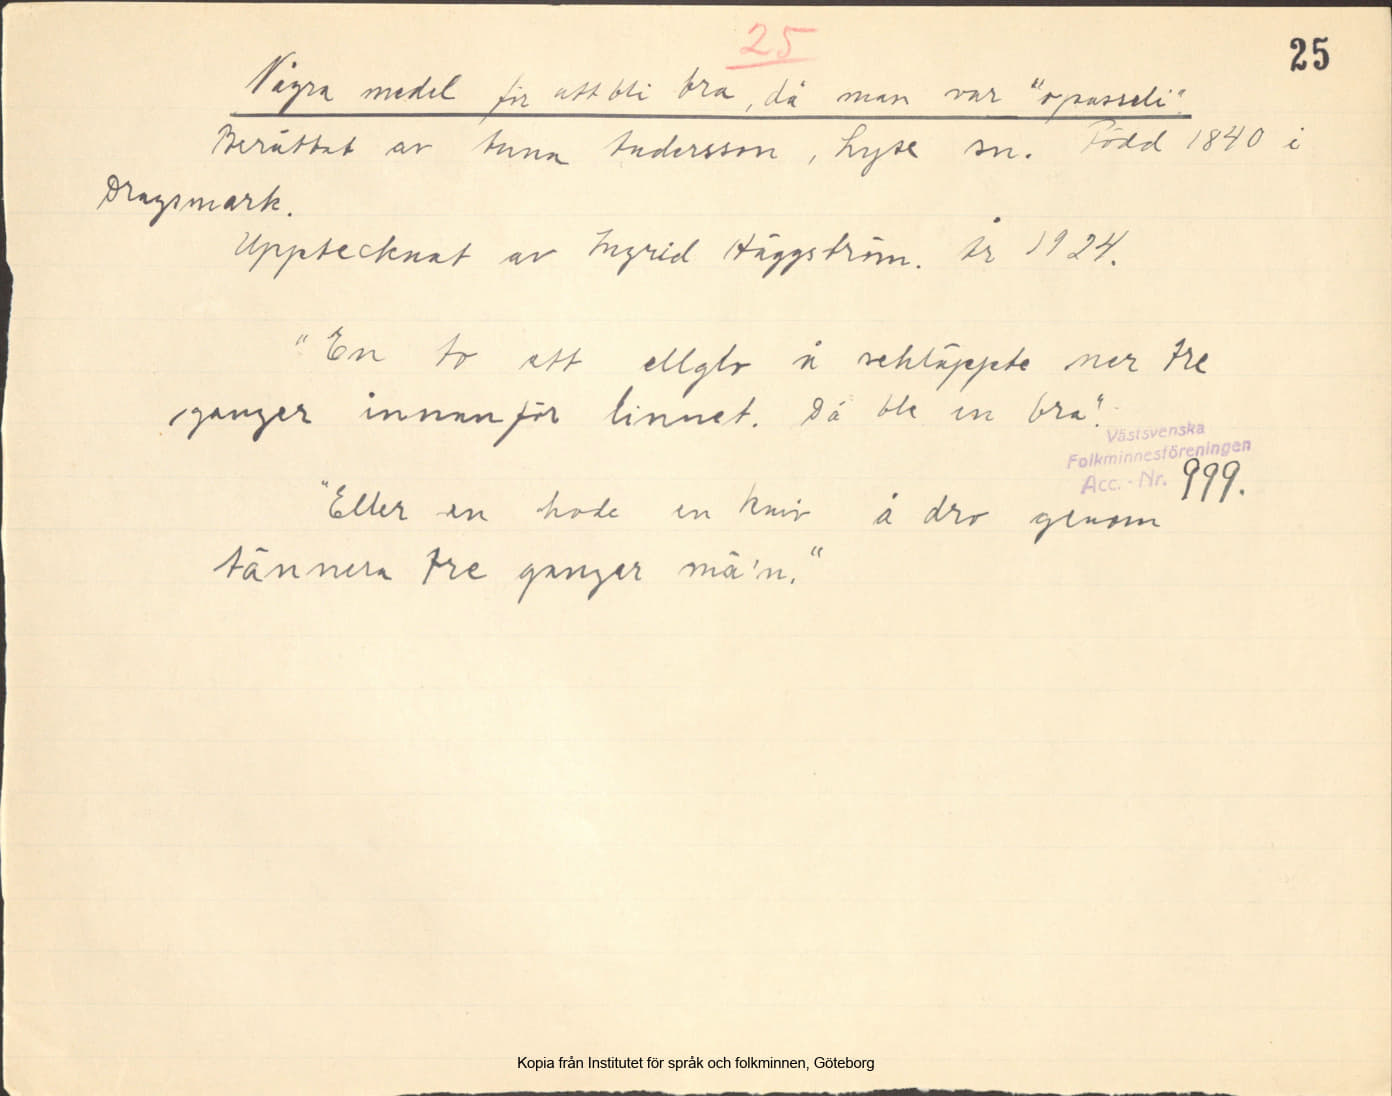 25
25
Några medel för att bli bra, då man var "opasseli".
Berättat av Anna Andersson, Lyse sn. Född 1840 i
Dragsmark.
Upptecknat av Ingrid Häggström. År 1924.
"En to ett ellglo å schläppte ner tre
ganger innanför linnet. Då ble en bra".
Västsvenska
Folkminnesföreningen
Acc. - Nr. 999.
"Eller en hode en kniv å dro genom
tännera tre ganger mä'n."
Kopia från Institutet för språk och folkminnen, Göteborg